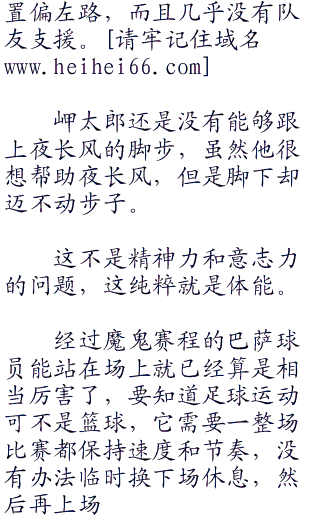 置偏左路，而且几乎没有队
友支援。[请牢记住域名
www.heihei66.com]
岬太郎还是没有能够跟
上夜长风的脚步，虽然他很
想帮助夜长风，但是脚下却
迈不动步子。
这不是精神力和意志力
的问题，这纯粹就是体能。
经过魔鬼赛程的巴萨球
员能站在场上就已经算是相
当厉害了，要知道足球运动
可不是篮球，它需要一整场
比赛都保持速度和节奏，没
有办法临时换下场休息，然
后再上场